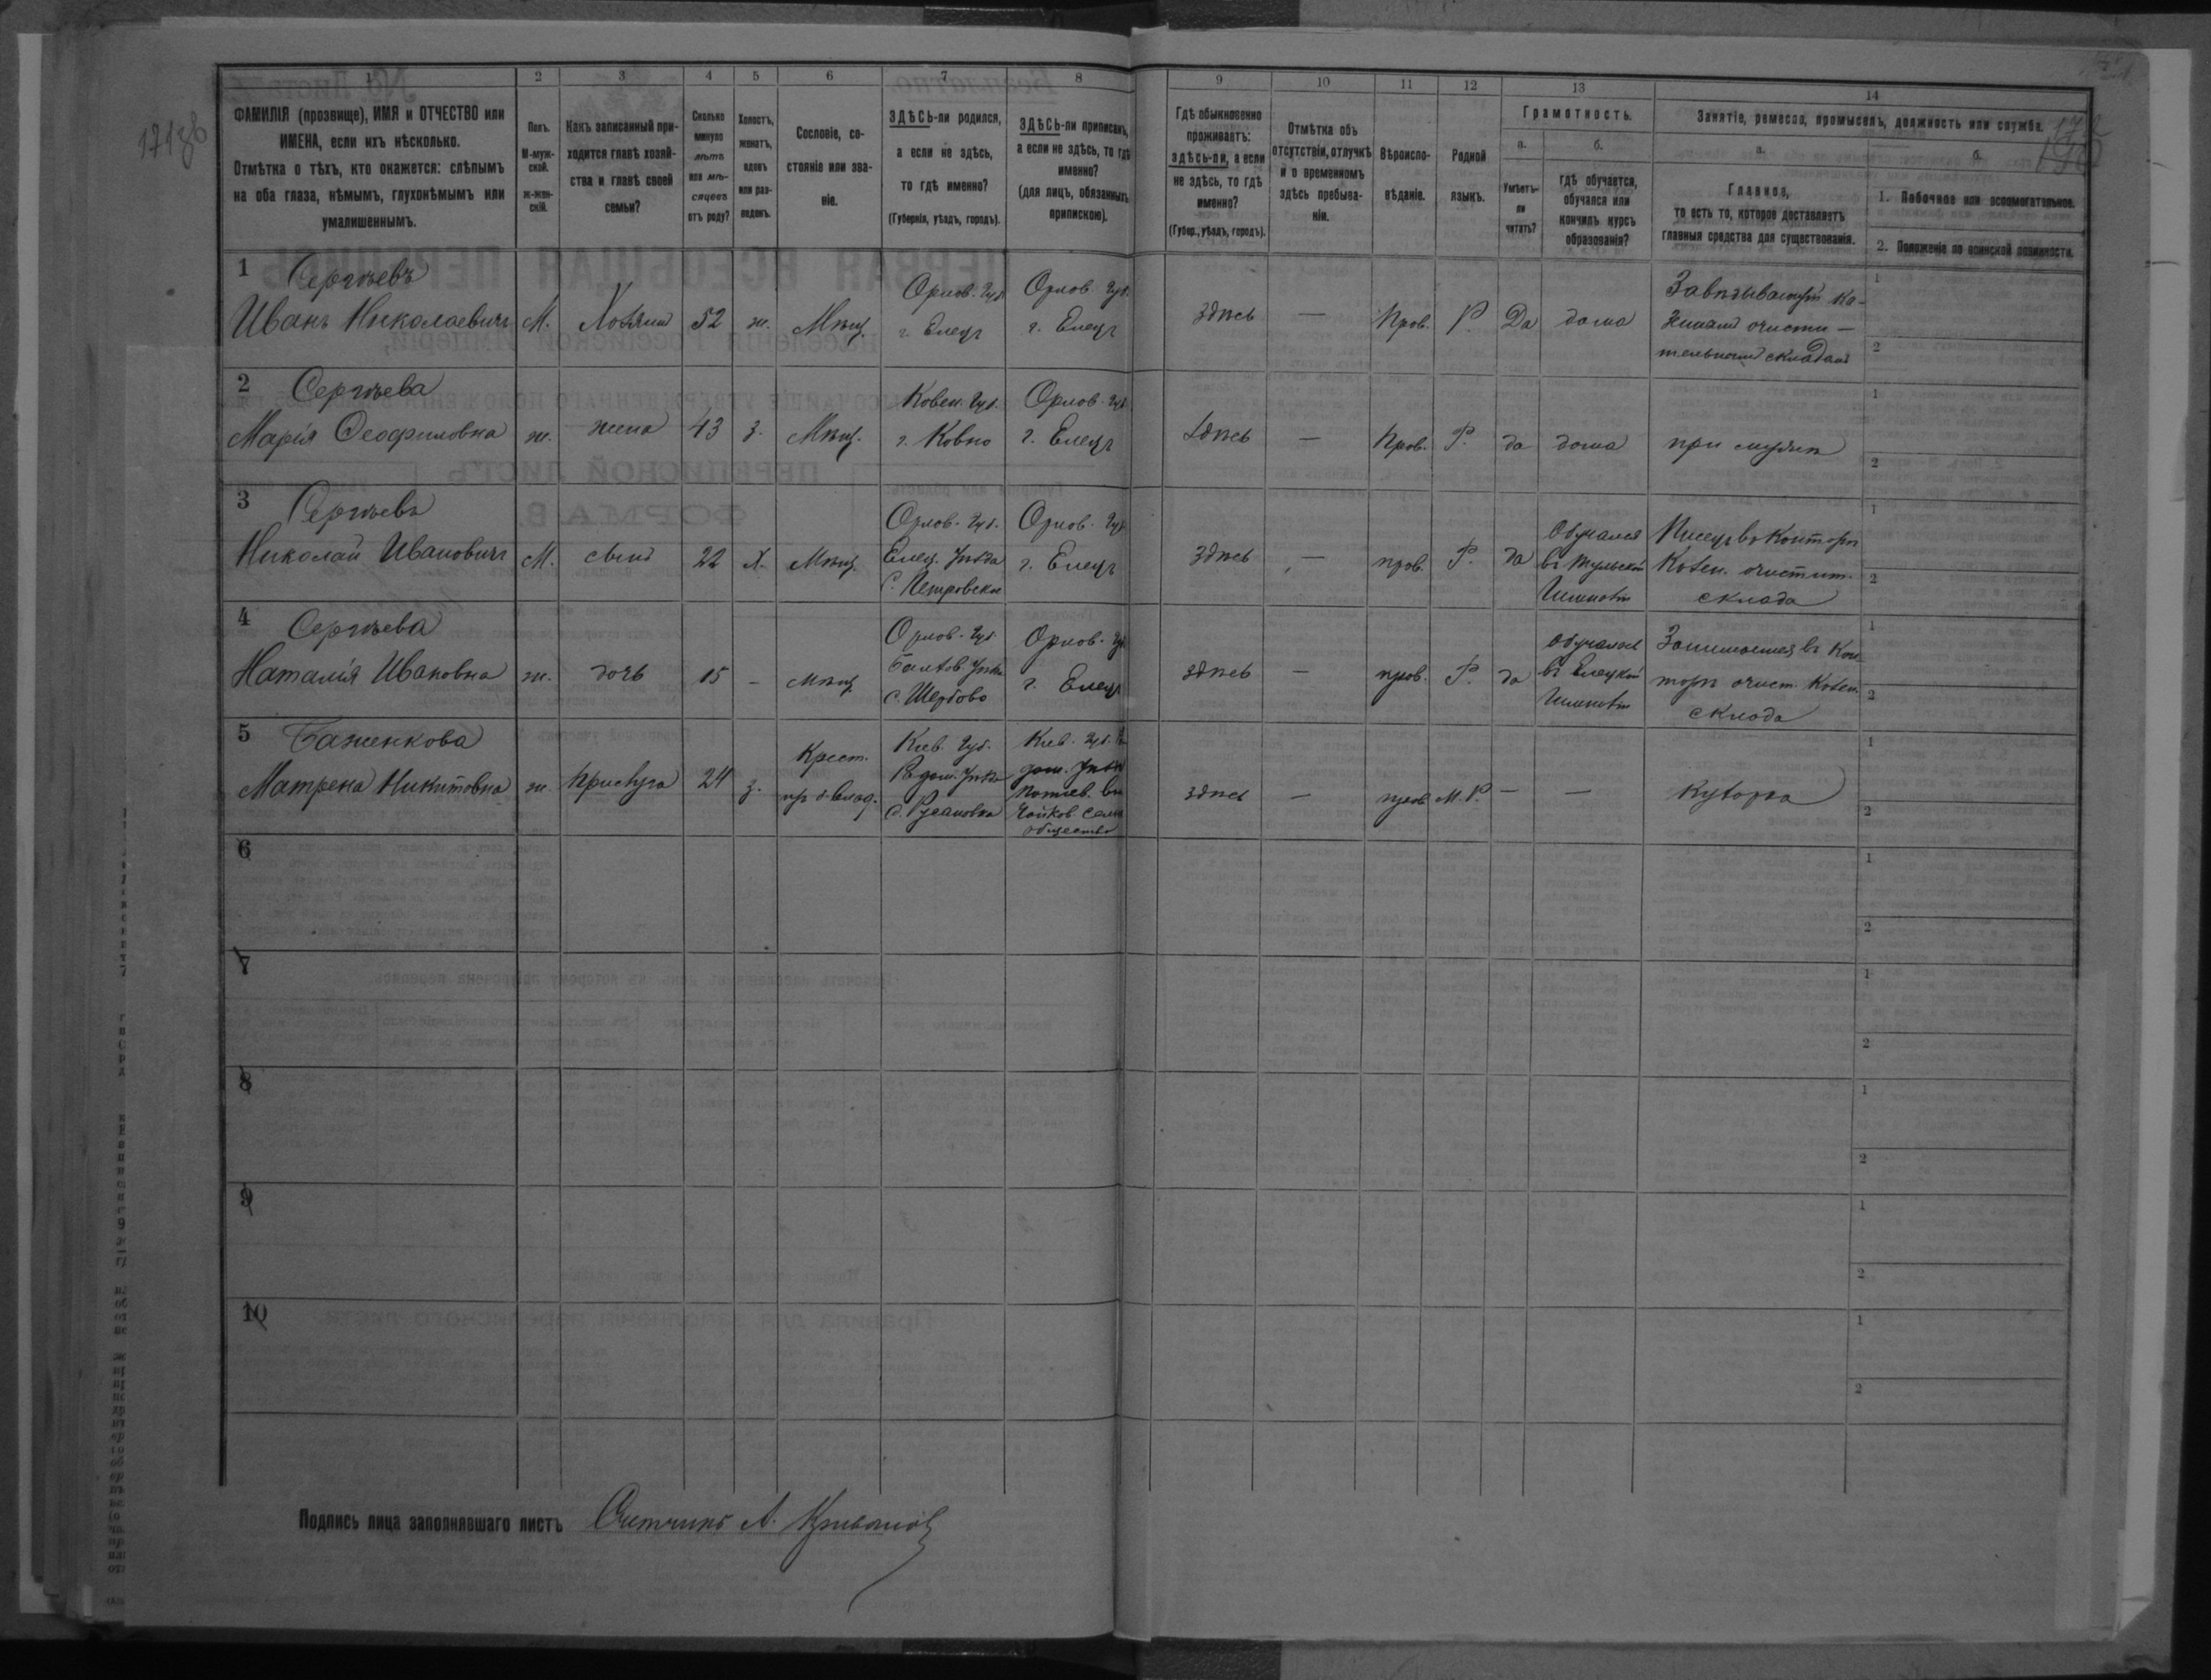 1 2 3 4 5 6 7 8 9 10 11 12 13 14
ФАМИЛІЯ (прозвище), ИМЯ и ОТЧЕСТВО или
ИМЕНА, если ихъ нѣсколько.
Отмѣтка о тѣхъ, кто окажется: слѣпымъ
на оба глаза, нѣмымъ, глухонѣмымъ или
умалишеннымъ.
Полъ.
М-муж-
ской.
ж-жен-
скій.
Какъ записанный при-
ходится главѣ хозяй-
ства и главѣ своей
семьи?
Сколько
минуло
лѣтъ
или мѣ-
сяцевъ
отъ роду?
Холостъ,
женатъ,
вдовъ
или раз-
веденъ.
Сословіе, со-
стояніе или зва-
ніе.
ЗДѢСЬ-ли родился,
а если не здѣсь,
то гдѣ именно?
(Губернія, уѣздъ, городъ).
ЗДѢСЬ-ли приписанъ,
а если не здѣсь, то гдѣ
именно?
(для лицъ, обязанныхъ
припискою).
Гдѣ обыкновенно
проживаетъ:
здѣсь-ли, а если
не здѣсь, то гдѣ
именно?
(Губер., уѣздъ, городъ).
Отмѣтка объ
отсутствіи, отлучкѣ
и о временномъ
здѣсь пребыва-
ніи.
Вѣроиспо-
вѣданіе.
Родной
языкъ.
Грамотность.
а.
Умѣетъ-
ли
читать?
б.
гдѣ обучается,
обучался или
кончилъ курсъ
образованія?
Занятіе, ремесло, промыселъ, должность или служба.
а.
Главное,
то есть то, которое доставляетъ
главныя средства для существованія.
б.
1. Побочное или вспомогательное.
2. Положеніе по воинской повинности.
1 Сергѣевъ
Иванъ Николаевичъ М. Хозяинъ 52 ж. Мѣщ.
Орлов. Губ.
г. Елецъ
Орлов. Губ.
г. Елецъ
здѣсь — Прав. Р. Да дома
Завѣдывающій Ка-
зеннымъ очисти-
тельнымъ складомъ
1
2
2 Сергѣева
Марія Ѳеофиловна ж. жена 43 з. Мѣщ.
Ковен. Губ.
г. Ковно
Орлов. Губ.
г. Елецъ
здѣсь — Прав. Р. да дома при мужѣ
1
2
3 Сергѣевъ
Николай Ивановичъ М. сынъ 22 х. Мѣщ.
Орлов. Губ.
Елец. Уѣзда
С. Петровское
Орлов. Губ.
г. Елецъ
здѣсь — прав. Р. да
Обучался
въ Тульской
Гимназіи
Писецъ въ Конторѣ
Казен. очистит.
склада
1
2
4 Сергѣева
Наталія Ивановна ж. дочь 15 - Мѣщ.
Орлов. Губ.
с. Щербово
Орлов. Губ.
г. Елецъ
здѣсь — прав. Р. да
обучалась
въ Елецкой
Гимназіи
Занимается въ Кон
торѣ очист. Казен.
склада
1
2
5 Баженкова
Матрена Никитовна ж. прислуга 24 з.
Крест.
Кіев. Губ.
Радом. Уѣзда
д. Русановка
Кіев. Губ. Ра
дом. Уѣзда
общество
здѣсь — прав. М.Р. — — Кухарка
1
2
6
1
2
7
1
2
8
1
2
9
1
2
10
1
2
Подпись лица заполнявшаго листъ Счетчикъ А.